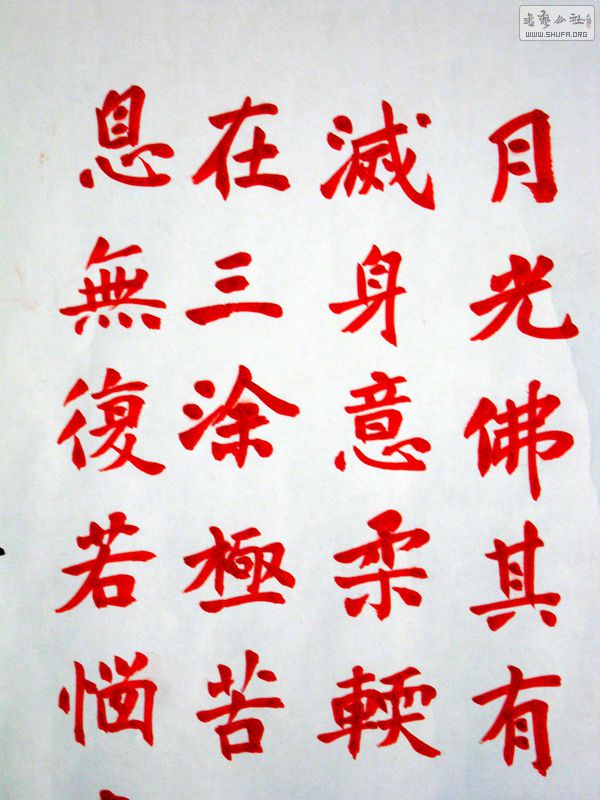 月光佛其有
滅身意柔輭
在三涂極苦
息無復若惱
书艺公社
WWW.SHUFA.ORG